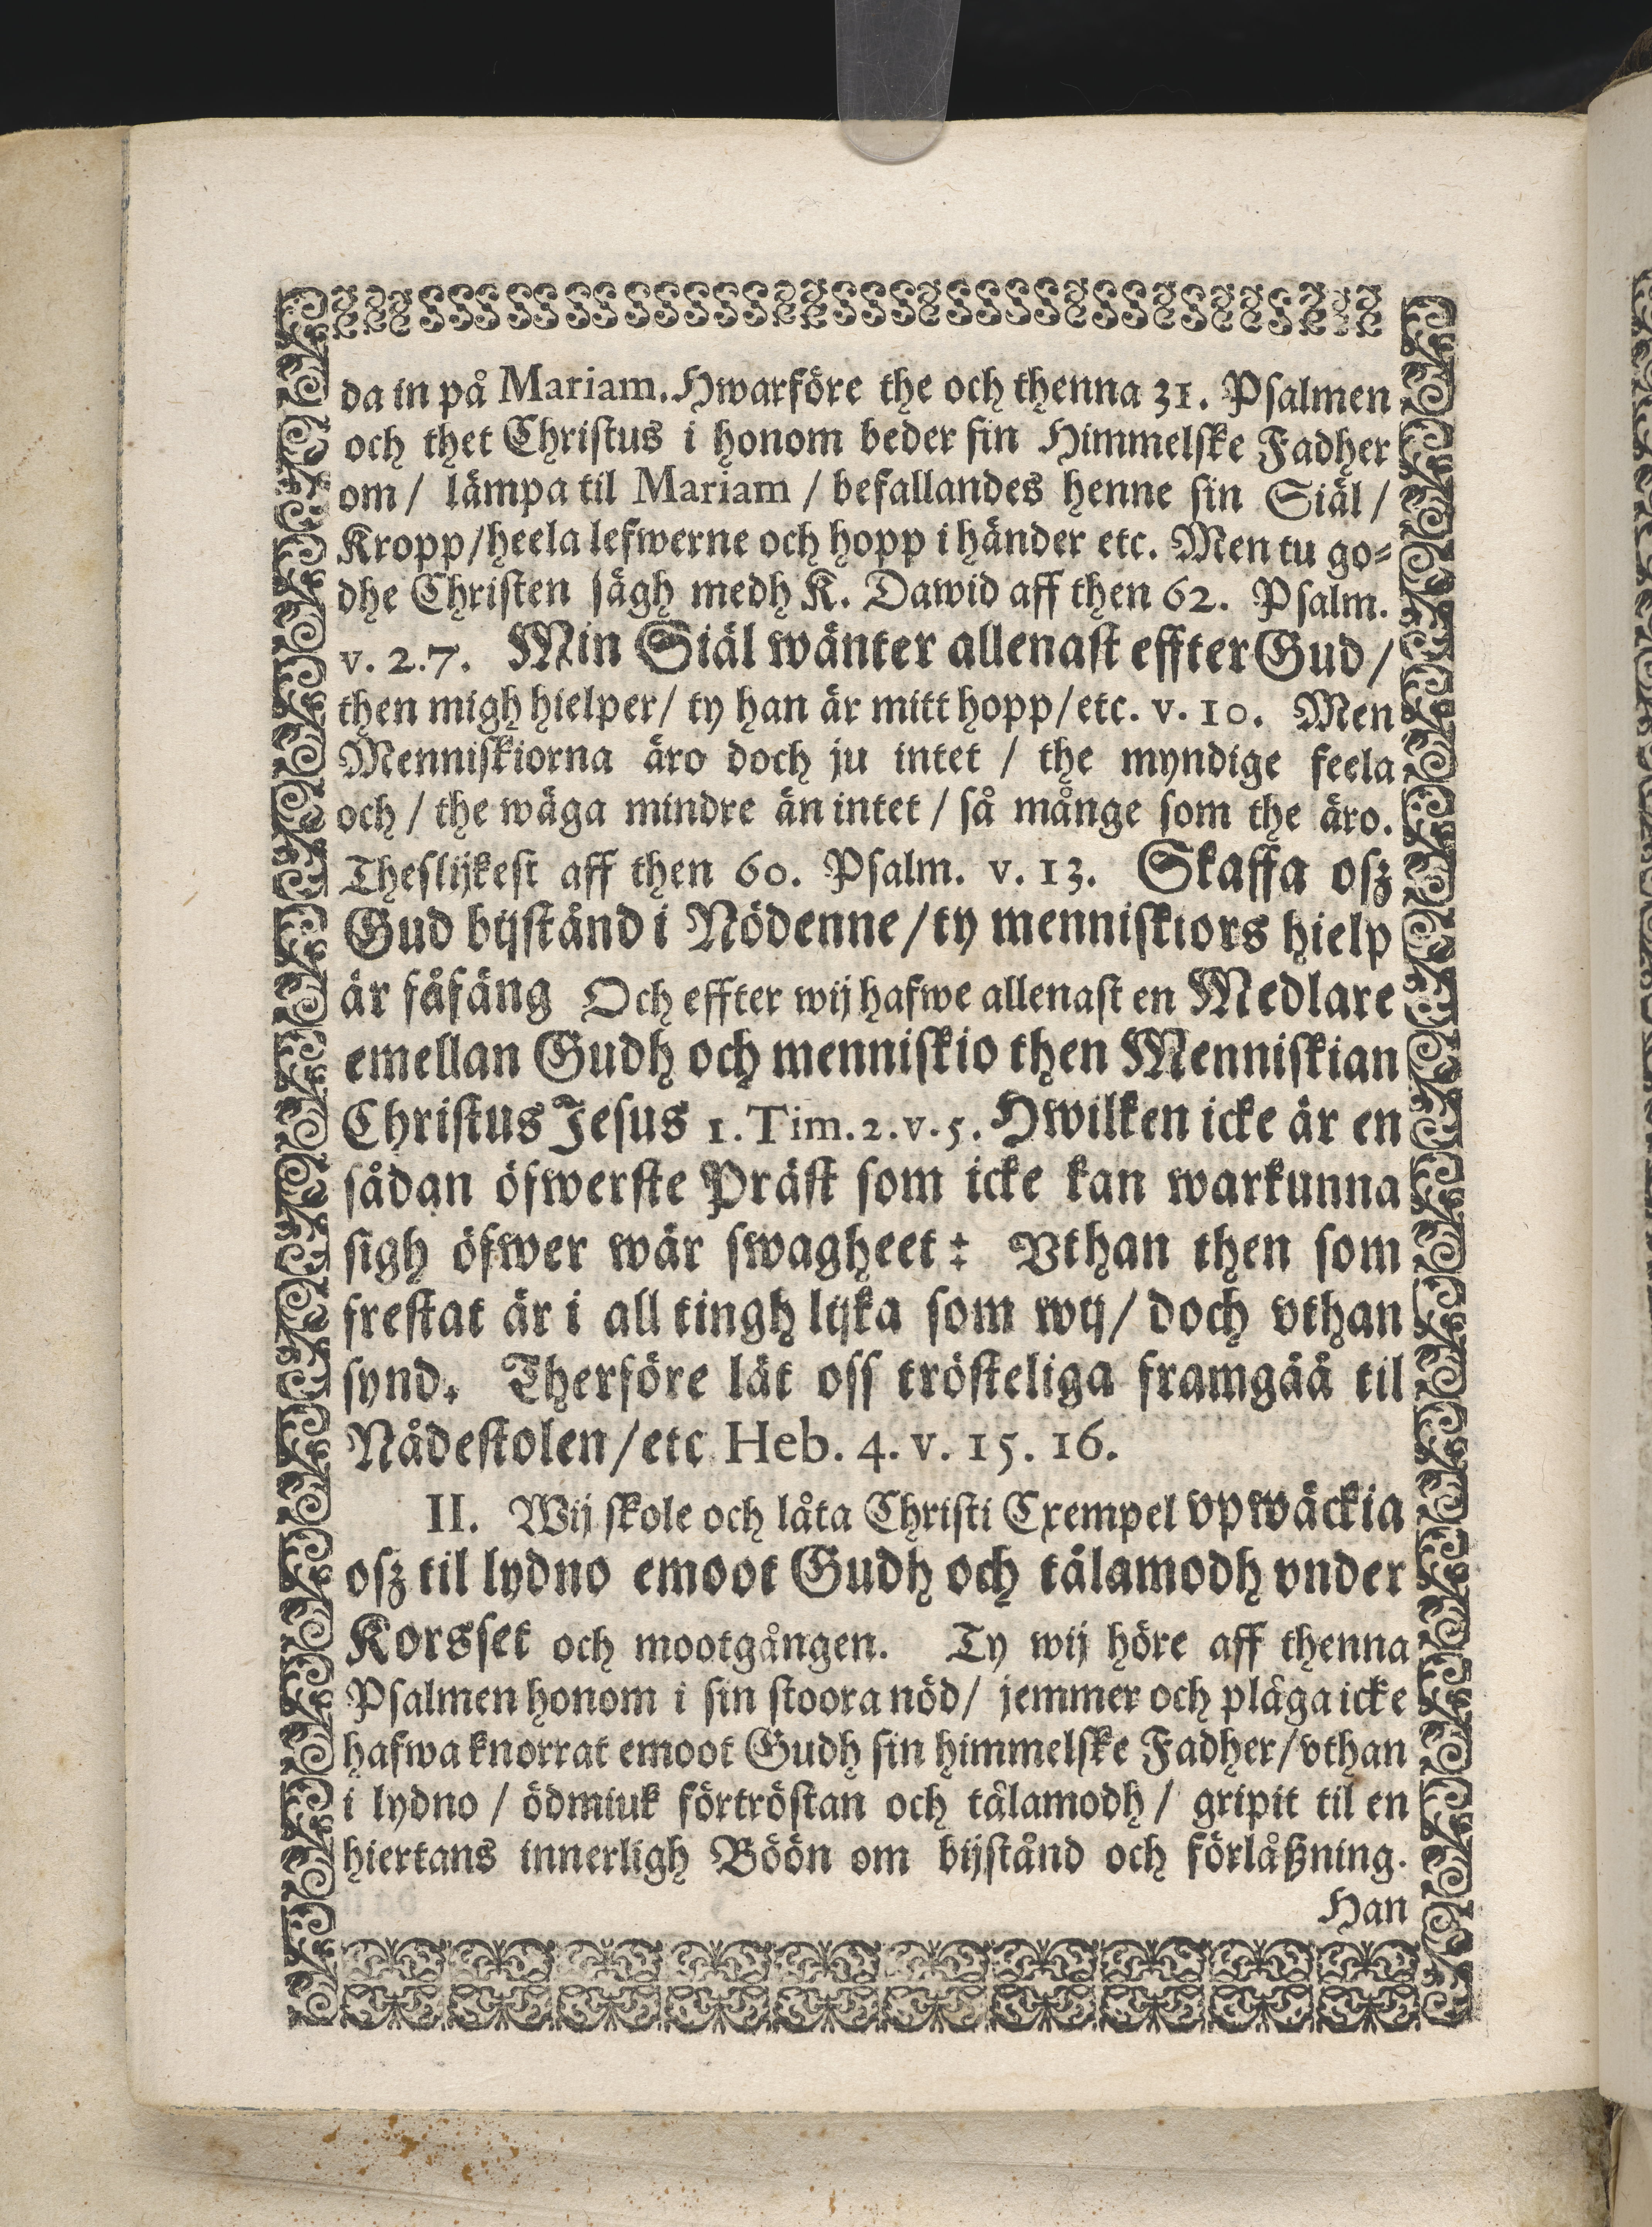 da in på Mariam. Hwarföre the och thenna 31. Psalmen
och thet Christus i honom beder sin Himmelske Fadher
om / lämpa til Mariam / befallandes henne sin Siäl /
Kropp/heela lefwerne och hopp i händer etc. Men tu go-
dhe Christen sägh medh K. Dawid aff then 62. Psalm.
v. 2.7. Min Siäl wänter allenast effter Gud /
then migh hielper/ ty han är mitt hopp/etc. v. 10. Men
Menniskiorna äro doch ju intet / the myndige feela
och / the wäga mindre än intet / så månge som the äro.
Theslijkest aff then 60. Psalm. v. 13. Skaffa osz
Gud bijstånd i Nödenne/ty menniskiors hielp
är fåfäng Och effter wij hafwe allenast en Medlare
emellan Gudh och menniskio then Menniskian
Christus Jesus 1. Tim. 2. v. 5. Hwilken icke är en
sådan öfwerste Präst som icke kan warkunna
sigh öfwer wår swagheet: Vthan then som
frestat är i all tingh lijka som wij/ doch vthan
synd. Therföre låt oss trösteliga framgåå til
Nådestolen/etc Heb. 4. v. 15. 16.
II. Wij skole och låta Christi Exempel vpwäckia
osz til lydno emoot Gudh och tålamodh vnder
Korsset och mootgången. Ty wij höre aff thenna
Psalmen honom i sin stoora nöd/ jemmer och plåga icke
hafwa knorrat emoot Gudh sin himmelske Fadher/vthan
i lydno / ödmiuk förtröstan och tålamodh / gripit til en
hiertans innerligh Böön om bijstånd och förlåßning.
Han